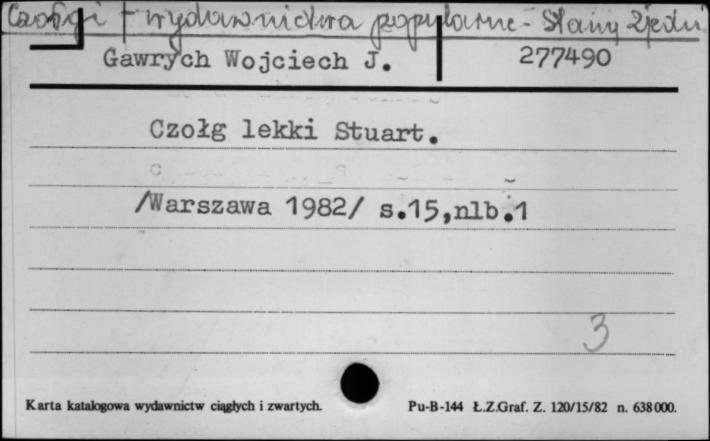 Czołgi - wydawnictwa popularne - Stany Zjedn
Gawrych Wojciech J. 277490
Czołg lekki Stuart.
/Warszawa 1982/ s.15,nlb.1
3
Karta katalogowa wydawnictw ciągłych i zwartych. Pu-B-144 Ł.Z.Graf. Z. 120/15/82 n. 638000.